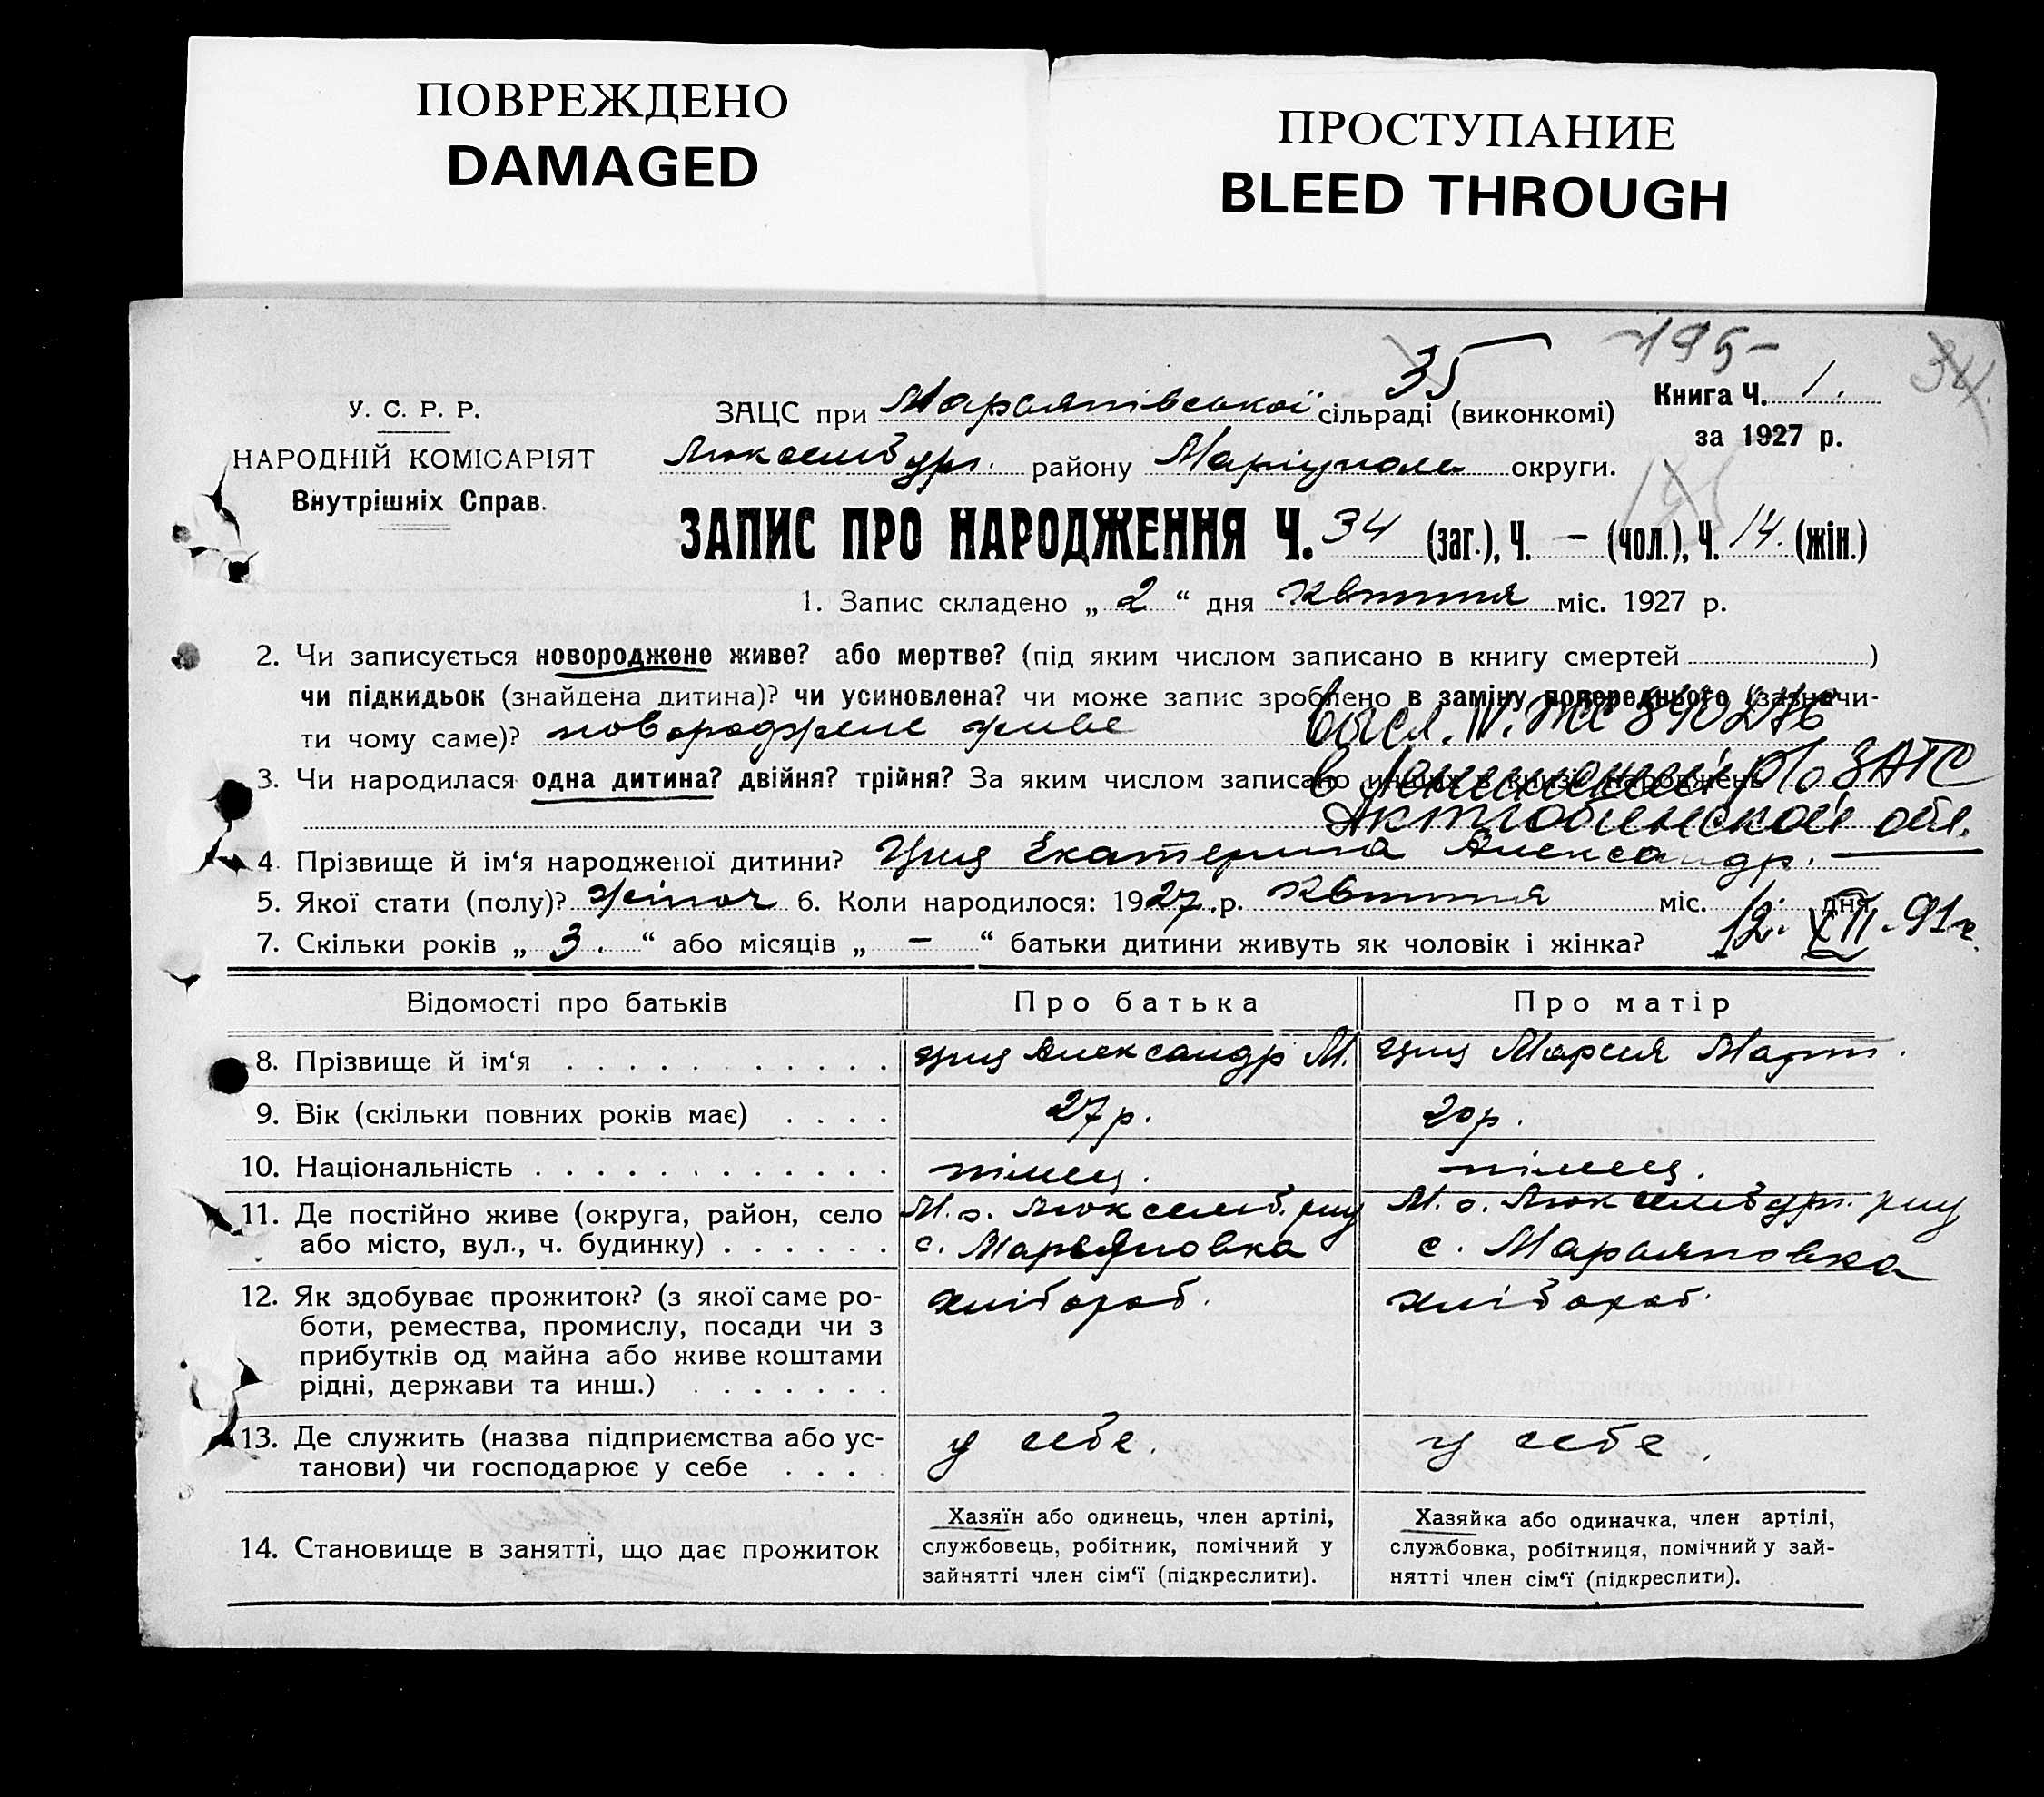 ПОВРЕЖДЕНО
DAMAGED
ПРОСТУПАНИЕ
BLEED THROUGH
-195-
34.
35
У. С. Р. Р.
НАРОДНІЙ КОМІСАРІЯТ
Внутрішніх Справ.
ЗАЦС при Марьянівської сільраді (виконкомі)
Книга Ч. 1.
за 1927 р.
Люксембург. району Маріуполь округи.
ЗАПИС ПРО НАРОДЖЕННЯ Ч. 34 (заг.), Ч. – (чол.), Ч. 14. (жін.)
1. Запис складено „ 2 “ дня квітня міс. 1927 р.
2. Чи записується новороджене живе? або мертве? (під яким числом записано в книгу смертей )
чи підкидьок (знайдена дитина)? чи усиновлена? чи може запис зроблено в заміну попереднього (зазначи-
ти чому саме)? новороджене живе
3. Чи народилася одна дитина? двійня? трійня? За яким числом записано инших в книзі народжень
ЗАГС
Актюбинской обл.
4. Прізвище й ім‘я народженої дитини? Циц Екатерина Александр.
5. Якої стати (полу)? жіноч 6. Коли народилося: 1927 р. квітня міс. 1. дня
7. Скільки років „ 3. “ або місяців „ – “ батьки дитини живуть як чоловік і жінка?
12. XII. 91г.
Відомості про батьків Про батька Про матір
8. Прізвище й ім‘я Циц Александр М. Циц Мария Март.
9. Вік (скільки повних років має) 27р. 20р.
10. Національність німец. німец.
11. Де постійно живе (округа, район, село М. о. Люксемб. рну М. о. Люксембург. рну
або місто, вул., ч. будинку) с. Марьяновка с. Марьяновка
12. Як здобуває прожиток? (з якої саме ро- хлібороб. хлібороб.
боти, ремества, промислу, посади чи з
прибутків од майна або живе коштами
рідні, держави та инш.)
13. Де служить (назва підприємства або ус- у себе. у себе.
танови) чи господарює у себе
14. Становище в занятті, що дає прожиток
Хазяїн або одинець, член артілі,
службовець, робітник, помічний у
зайнятті член сім‘ї (підкреслити).
Хазяйка або одиначка, член артілі,
службовка, робітниця, помічний у зай-
нятті член сім‘ї (підкреслити).